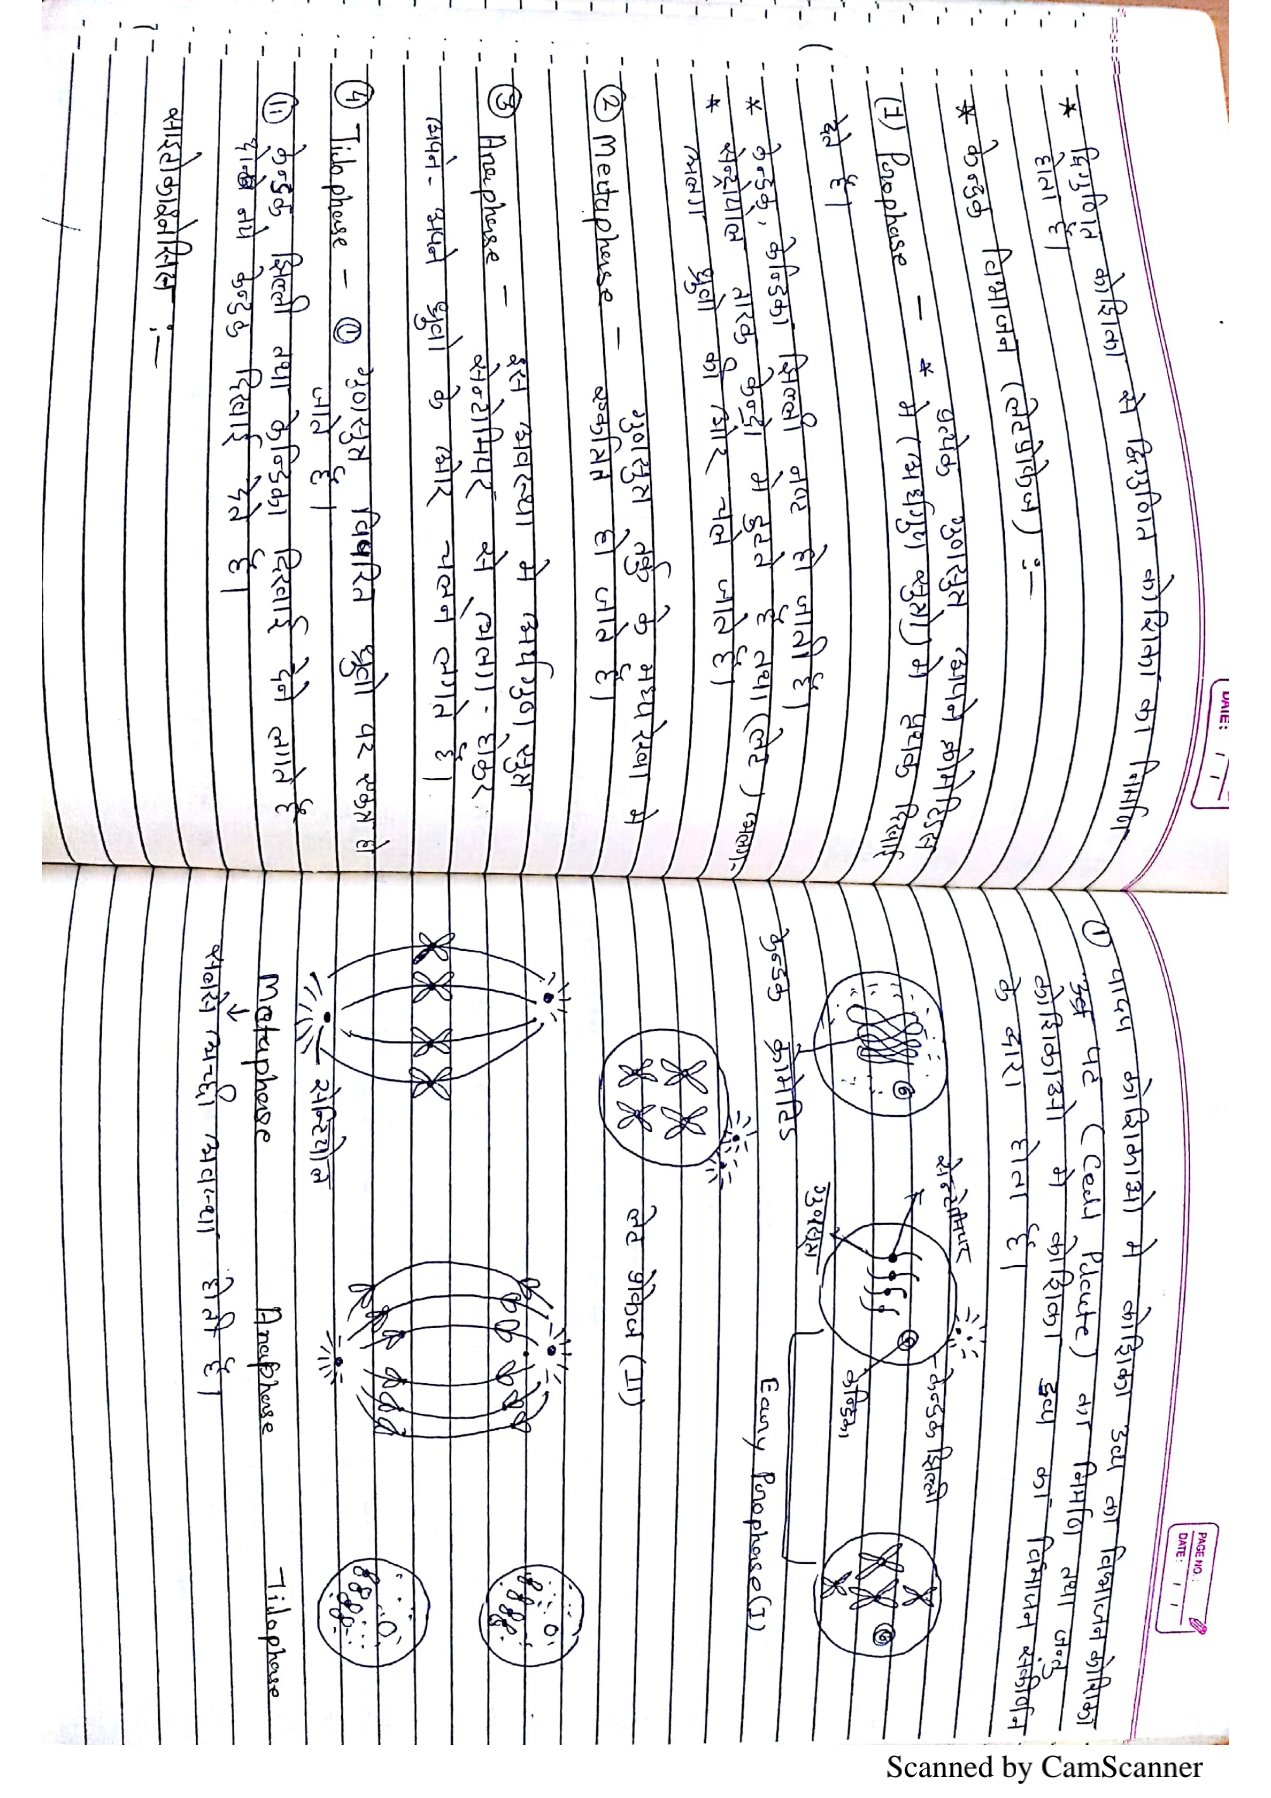 DATE:
* द्विगुणित कोशिका से द्विगुणित कोशिका का निर्माण
होता है।
* केन्द्रक विभाजन (लेटप्रोफेज) :—
(I) Prophase — * प्रत्येक गुणसूत्र अपने क्रोमेटिड्स
मे (अर्धगुण सूत्रो) मे पृथक दिखाई
देते है।
* केन्द्रक, केन्द्रिका झिल्ली नष्ट हो जाती है।
* सेन्ट्रोयोल तारक केन्द्रो मे हटते है तथा (लेट) अलग-
अलग ध्रुवो की ओर चले जाते है।
② Metaphase — गुणसूत्र तर्कु के मध्य रेखा मे
एकत्रित हो जाते है।
③ Anaphase — इस अवस्था मे अर्धगुण सूत्र
सेन्ट्रोमियर से अलग-होकर
अपने-अपने ध्रुवो के ओर चलने लगते है।
④ Tilophase — ① गुणसूत्र विपरित ध्रुवो पर एकत्र हो
जाते है।
⑪ केन्द्रक झिल्ली तथा केन्द्रिका दिखाई देने लगते है
नये केन्द्रक दिखाई देते है।
साइटोकाइनेसिस :—
PAGE NO.:
DATE: / /
① पादप कोशिकाओ मे कोशिका द्रव्य का विभाजन कोशिका
पट (Cell Placute) का निर्माण तथा जन्तु
कोशिकाओ मे कोशिका द्रव्य का विभाजन संकीर्णन
के द्वारा होता है।
सेन्ट्रोमियर
केन्द्रक झिल्ली
केन्द्रिका
गुणसूत्र
केन्द्रक क्रोमेटिड
Eauy Prophase (I)
लेट प्रोफेज (II)
सेन्ट्रियोल
Metaphase
Anaphase
Tilophase
↓
सबसे अच्छी अवस्था होती है।
Scanned by CamScanner